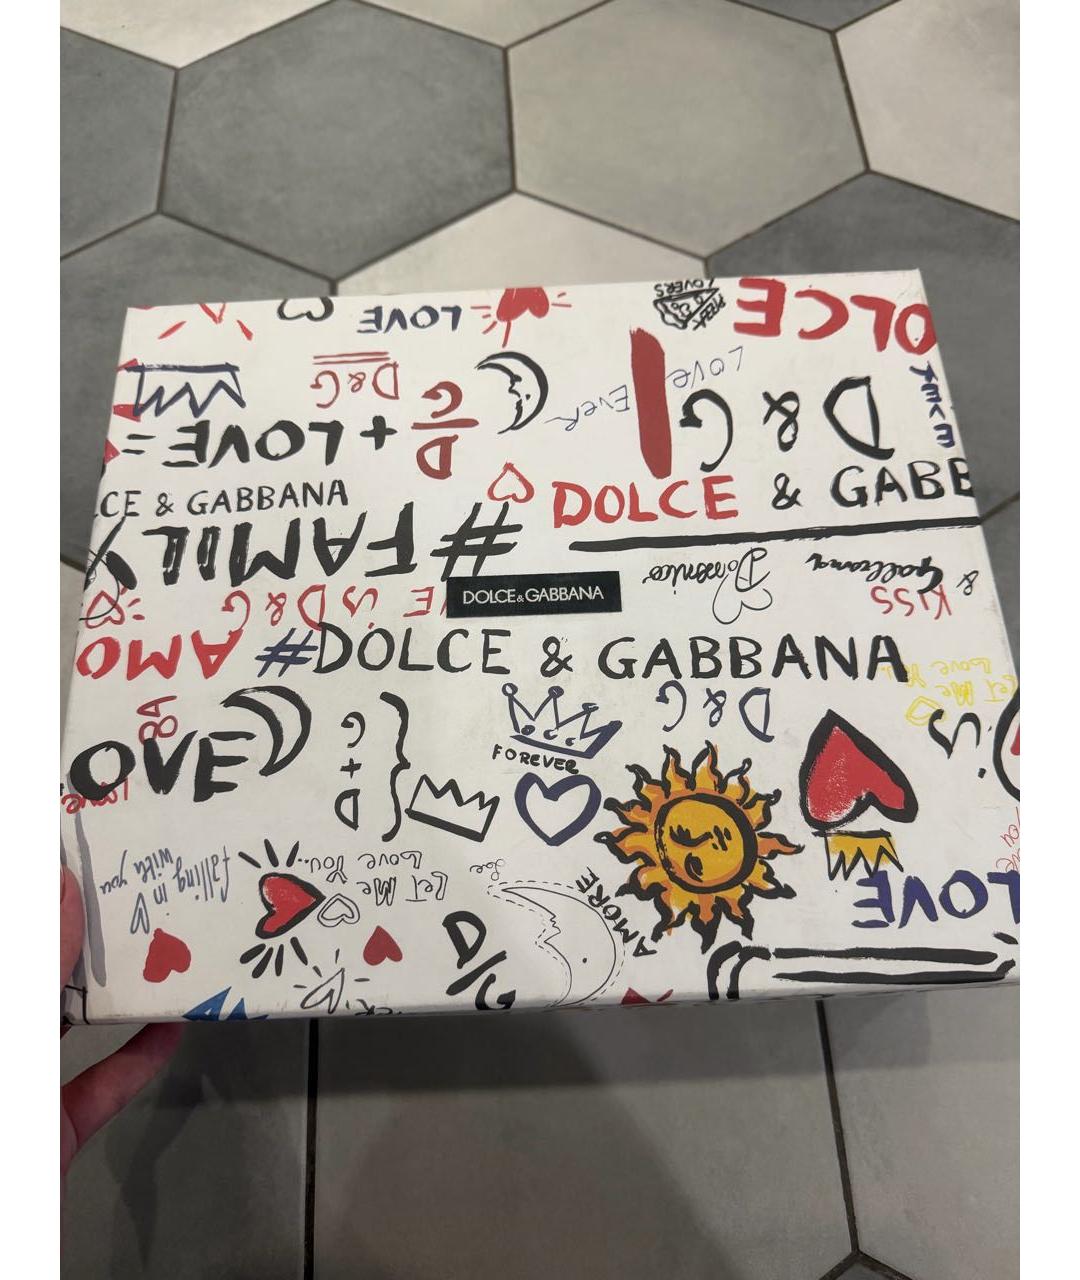 LOVE
PIZZA
LOVERS
DOLCE
D&G
LOVE
EVER
D & G
= LOVE + D
G
CE & GABBANA
DOLCE & GABB
#FAMILY
Domenico
& Gabbana
KISS
E is D&G
DOLCE&GABBANA
AMO
#DOLCE & GABBANA
LET Me
Love You..
D&G
is
OVE
G + D
FOREVER
Love
falling in
with you
LeT Me
Love You..
AMORE
LOVE
D/G